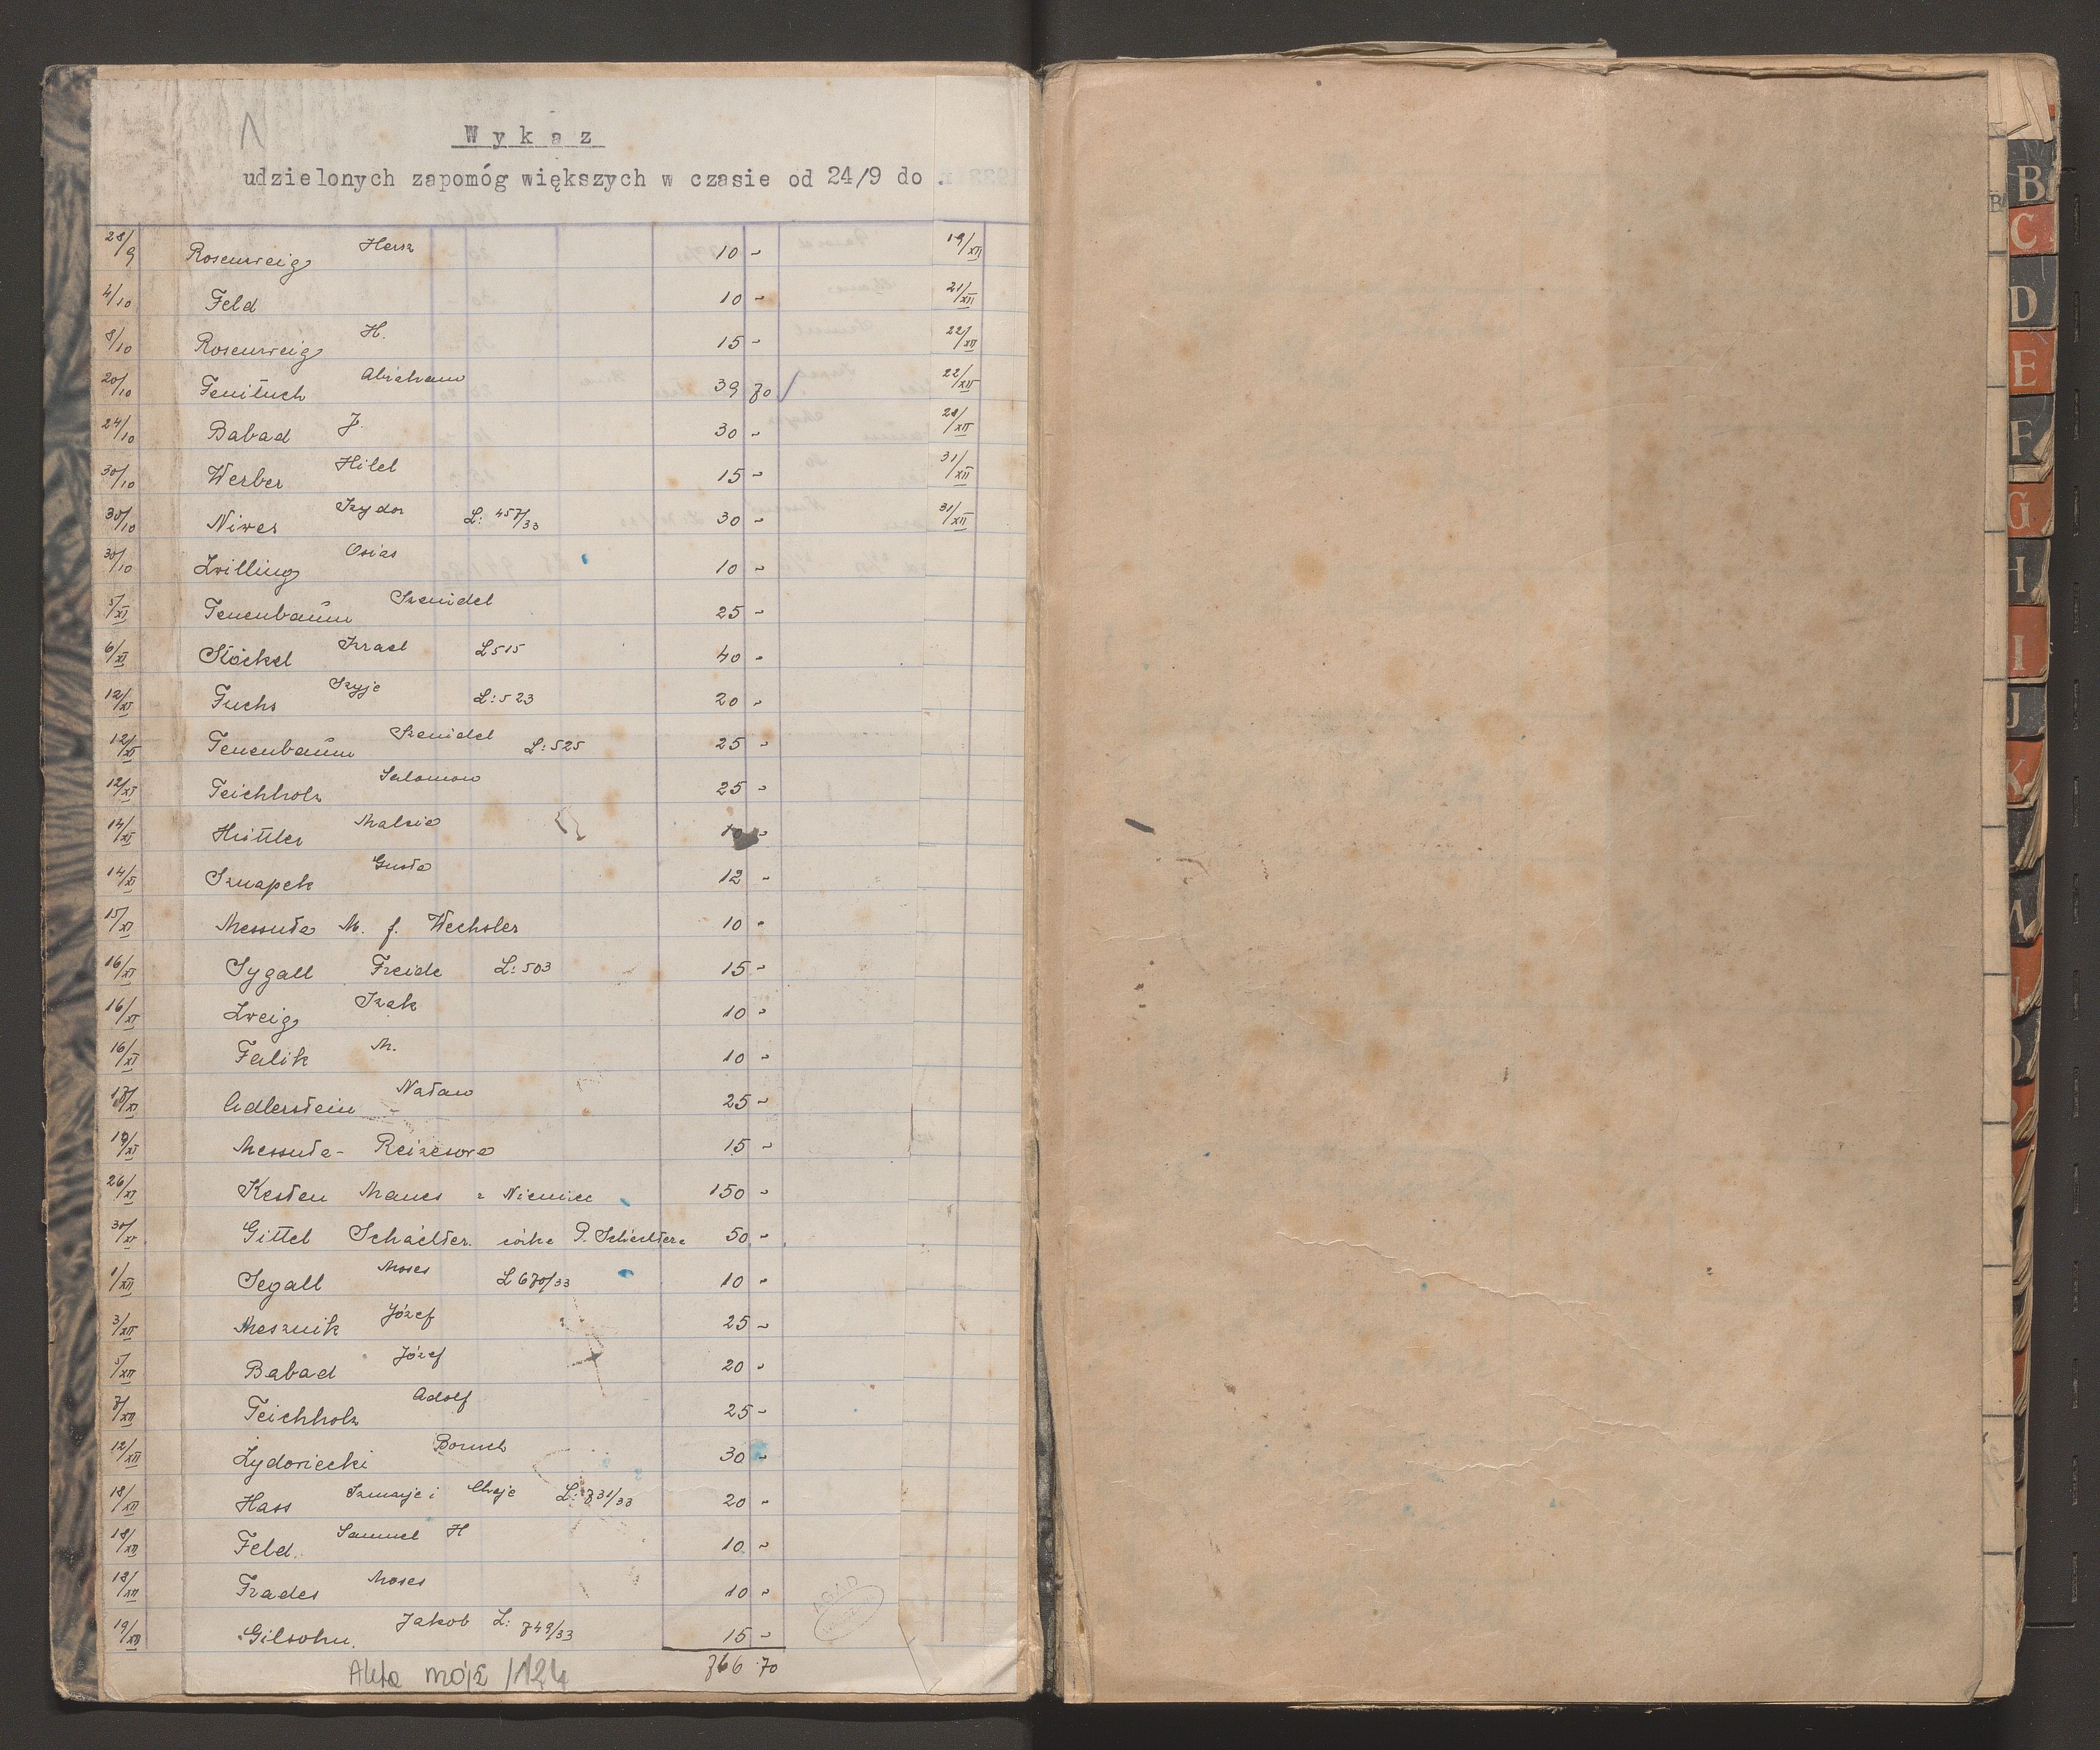 Wykaz
udzielonych zapomóg większych w czasie od 24/9 do .
28/9 Rosenzweig Hersz 10 - 19/XII
4/10 Feld 10 - 21/XII
8/10 Rosenzweig H. 15 - 22/XII
20/10 Abraham 39 70 22/XII
24/10 Babad J. 30 - 28/XII
30/10 Werber Hilel 15 - 31/XII
30/10 Niwes Izydor L: 457/33 30 - 31/XII
30/10 Zwilling Osias 10 -
5/XI Tenenbaum Szeindel 25 -
6/XI Stöckel Izrael L 515 40 -
12/XI Fuchs Szyje L: 523 20 -
12/XI Tenenbaum Szeindel L: 525 25 -
12/XI Teichholz Salomon 25 -
14/XI Hüttler Malzie 10 -
14/XI Sznapek Gusta 12 -
15/XI Messuta M. f. Wechsler 10 -
16/XI Sygall Freide L: 503 15 -
16/XI Zweig Izak 10 -
16/XI Falik M. 10 -
17/XI Adlerstein - Natan 25 -
19/XI Messuta - Reizesowa 15 -
26/XI Kesten Manes z Niemiec 150 -
30/XI Gittel Schächter córka P. Schächtera 50 -
1/XII Segall Moses L 670/33 10 -
3/XII Mesznik Józef 25 -
5/XII Babad Józef 20 -
7/XII Teichholz Adolf 25 -
12/XII Żydowiecki Boruch 30 -
18/XII Hass Szmaje i Chaje L: 731/33 20 -
18/XII Feld. Samuel H 10 -
18/XII Frades Moses 10 -
19/XII Gilsohn. Jakob L: 749/33 15 -
766 70
Akta mojż /124
AGAD
B
B
C
D
E
F
G
H
I
J
K
M
N
O
P